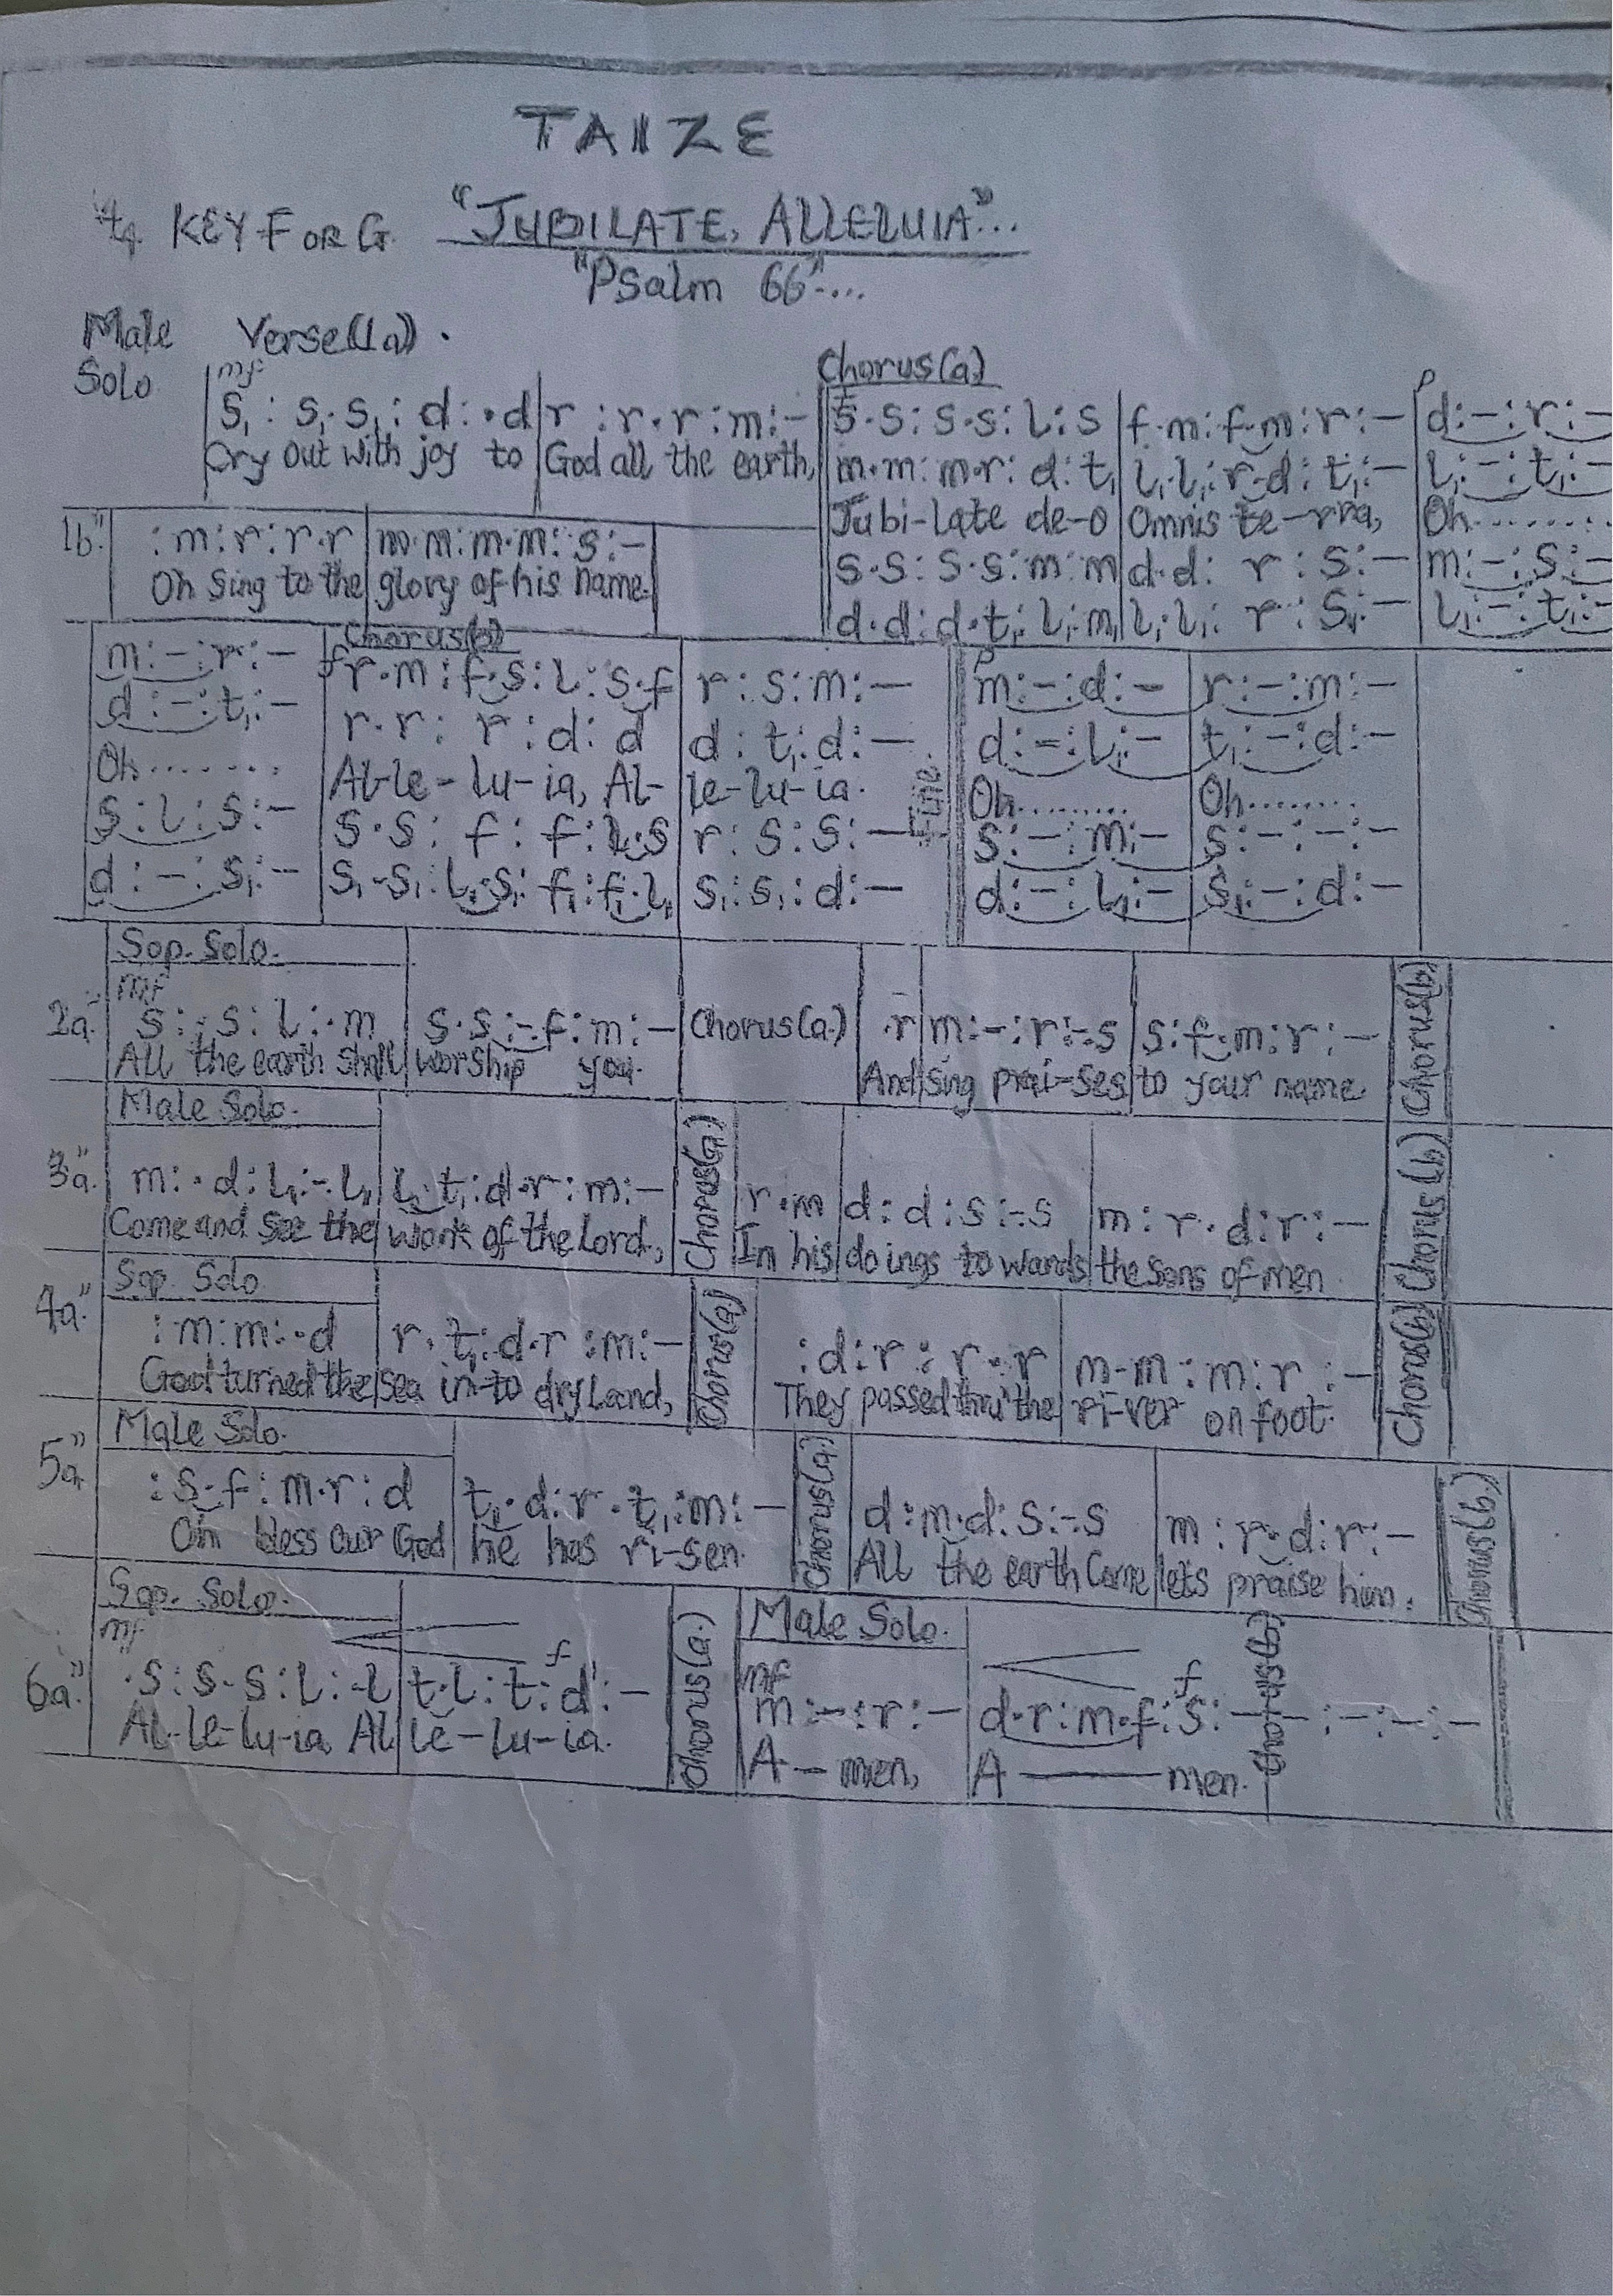 TAIZE
4/4 KEY F OR G. "JUBILATE, ALLELUIA"...
"Psalm 66"....
Male Verse(1a).
Solo
mf
Chorus(a)
p
s₁ : s₁.s₁ : d : .d | r : r.r : m : - || s.s : s.s : l : s | f.m : f.m : r : - | d : - : r : -
Cry out with joy to | God all the earth, || m.m : m.r : d : t₁ | l₁.l₁ : r.d : t₁ : - | l₁ : - : t₁ : -
Jubi-late de-o | Omnis te-rra, | Oh........
1b" | : m : r : r.r | m.m : m.m : s : - | s.s : s.s : m : m | d.d : r : s : - | m : - : s : -
Oh sing to the | glory of his name. | d.d : d.t₁ : l₁ : m₁ | l₁.l₁ : r : s₁ : - | l₁ : - : t₁ : -
Chorus(b)
p
m : - : r : - | f r.m : f.s : l : s.f | r : s : m : - || m : - : d : - | r : - : m : -
d : - : t₁ : - | r.r : r : d : d | d : t₁ : d : - || d : - : l₁ : - | t₁ : - : d : -
Oh........ | Al-le-lu-ia, Al- | le-lu-ia. || Oh......... | Oh........
Fine
s : l : s : - | s.s : f : f : l.s | r : s : s : - || s : - : m : - | s : - : - : -
d : - : s₁ : - | s₁.s₁ : l₁.s₁ : f₁ : f₁.l₁ | s₁ : s₁ : d : - || d : - : l₁ : - | s₁ : - : d : -
Sop. Solo.
mf
2a" s : .s : l : .m | s.s : -.f : m : - | Chorus(a.) | .r | m : - : r : -.s | s : f.m : r : - | Chorus(b)
All the earth shall | worship you. | And | sing prai-ses | to your name.
Male Solo.
3a" m : .d : l₁ : -.l₁ | l₁.t₁ : d.r : m : - | Chorus(a) | r.m | d : d : s : -.s | m : r.d : r : - | Chorus (b)
Come and see the | work of the Lord, | In his | do ings to wards | the sons of men
Sop. Solo.
4a" : m : m : .d | r.t₁ : d.r : m : - | Chorus(a) | : d : r : r.r | m.m : m : r : - | Chorus(b)
God turned the | sea in-to dry Land, | They passed thru' the | ri-ver on foot.
Male Solo.
5a" : s.f : m.r : d | t₁.d : r.t₁ : m : - | Chorus(a.) | d : m.d : s : -.s | m : r.d : r : - | Chorus(b.)
Oh bless our God | he has ri-sen. | All the earth Come | lets praise him.
Sop. Solo.
Male Solo.
mf f mf f
6a" .s : s.s : l : -.l | t.l : t : d' : - | Chorus(a.) | m : - : r : - | d.r : m.f : s : - | - : - : - : - | Chorus(b)
Al-le-lu-ia, Al | le-lu-ia. | A - men, | A — men.